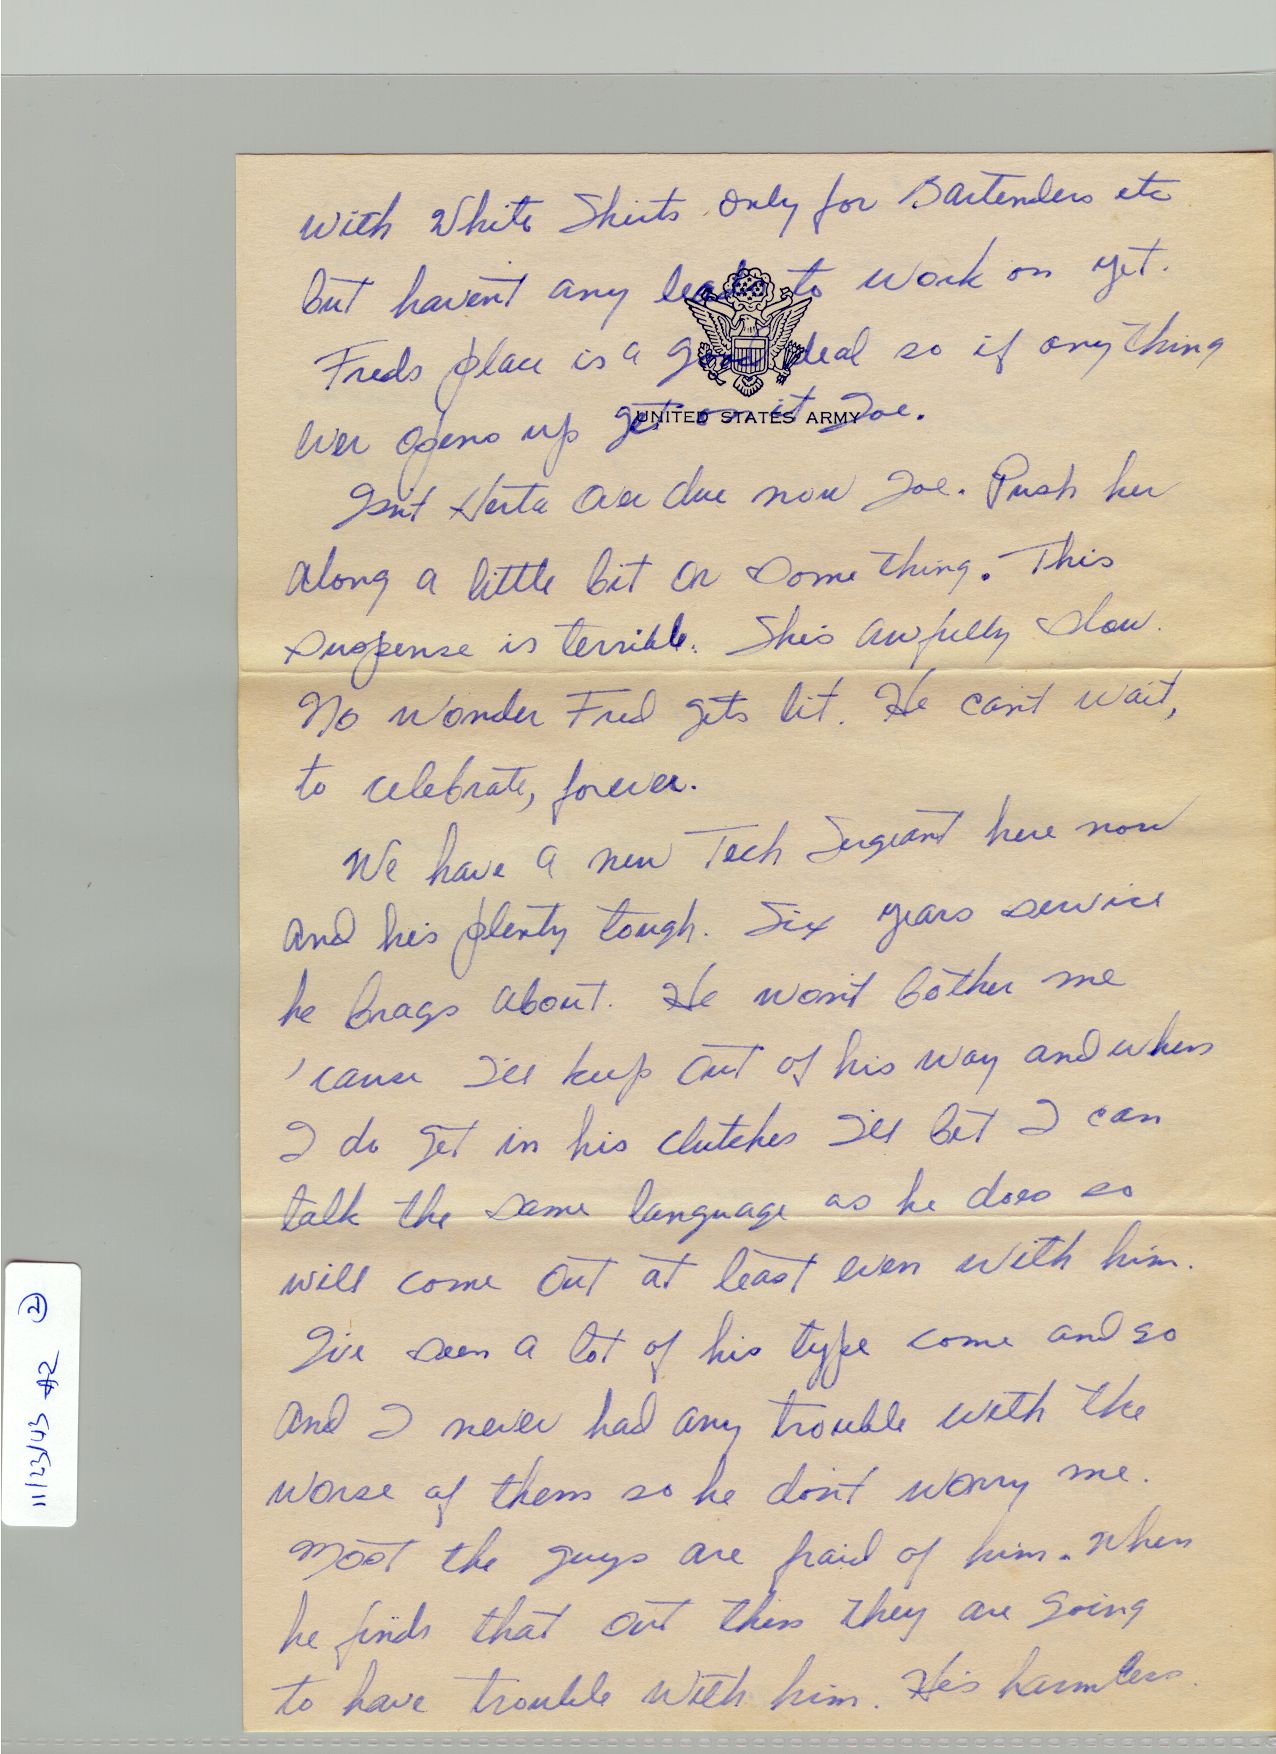 with White Shirts only for Bartenders etc
but haven't any leads to work on yet.
Freds place is a good deal so if anything
ever opens up get on it Joe.
UNITED STATES ARMY
Isn't Herta over due now Joe. Push her
along a little bit or something. This
suspense is terrible. She's awfully slow.
No wonder Fred gets lit. He can't wait,
to celebrate, forever.
We have a new Tech Sergeant here now
and his plenty tough. Six years service
he brags about. He won't bother me
'cause I'll keep out of his way and when
I do get in his clutches I'll bet I can
talk the same language as he does so
will come out at least even with him.
I've seen a lot of his type come and go
and I never had any trouble with the
worse of them so he don't worry me.
Most the guys are fraid of him. When
he finds that out then they are going
to have trouble with him. He's harmless.
11/23/43 #2 2